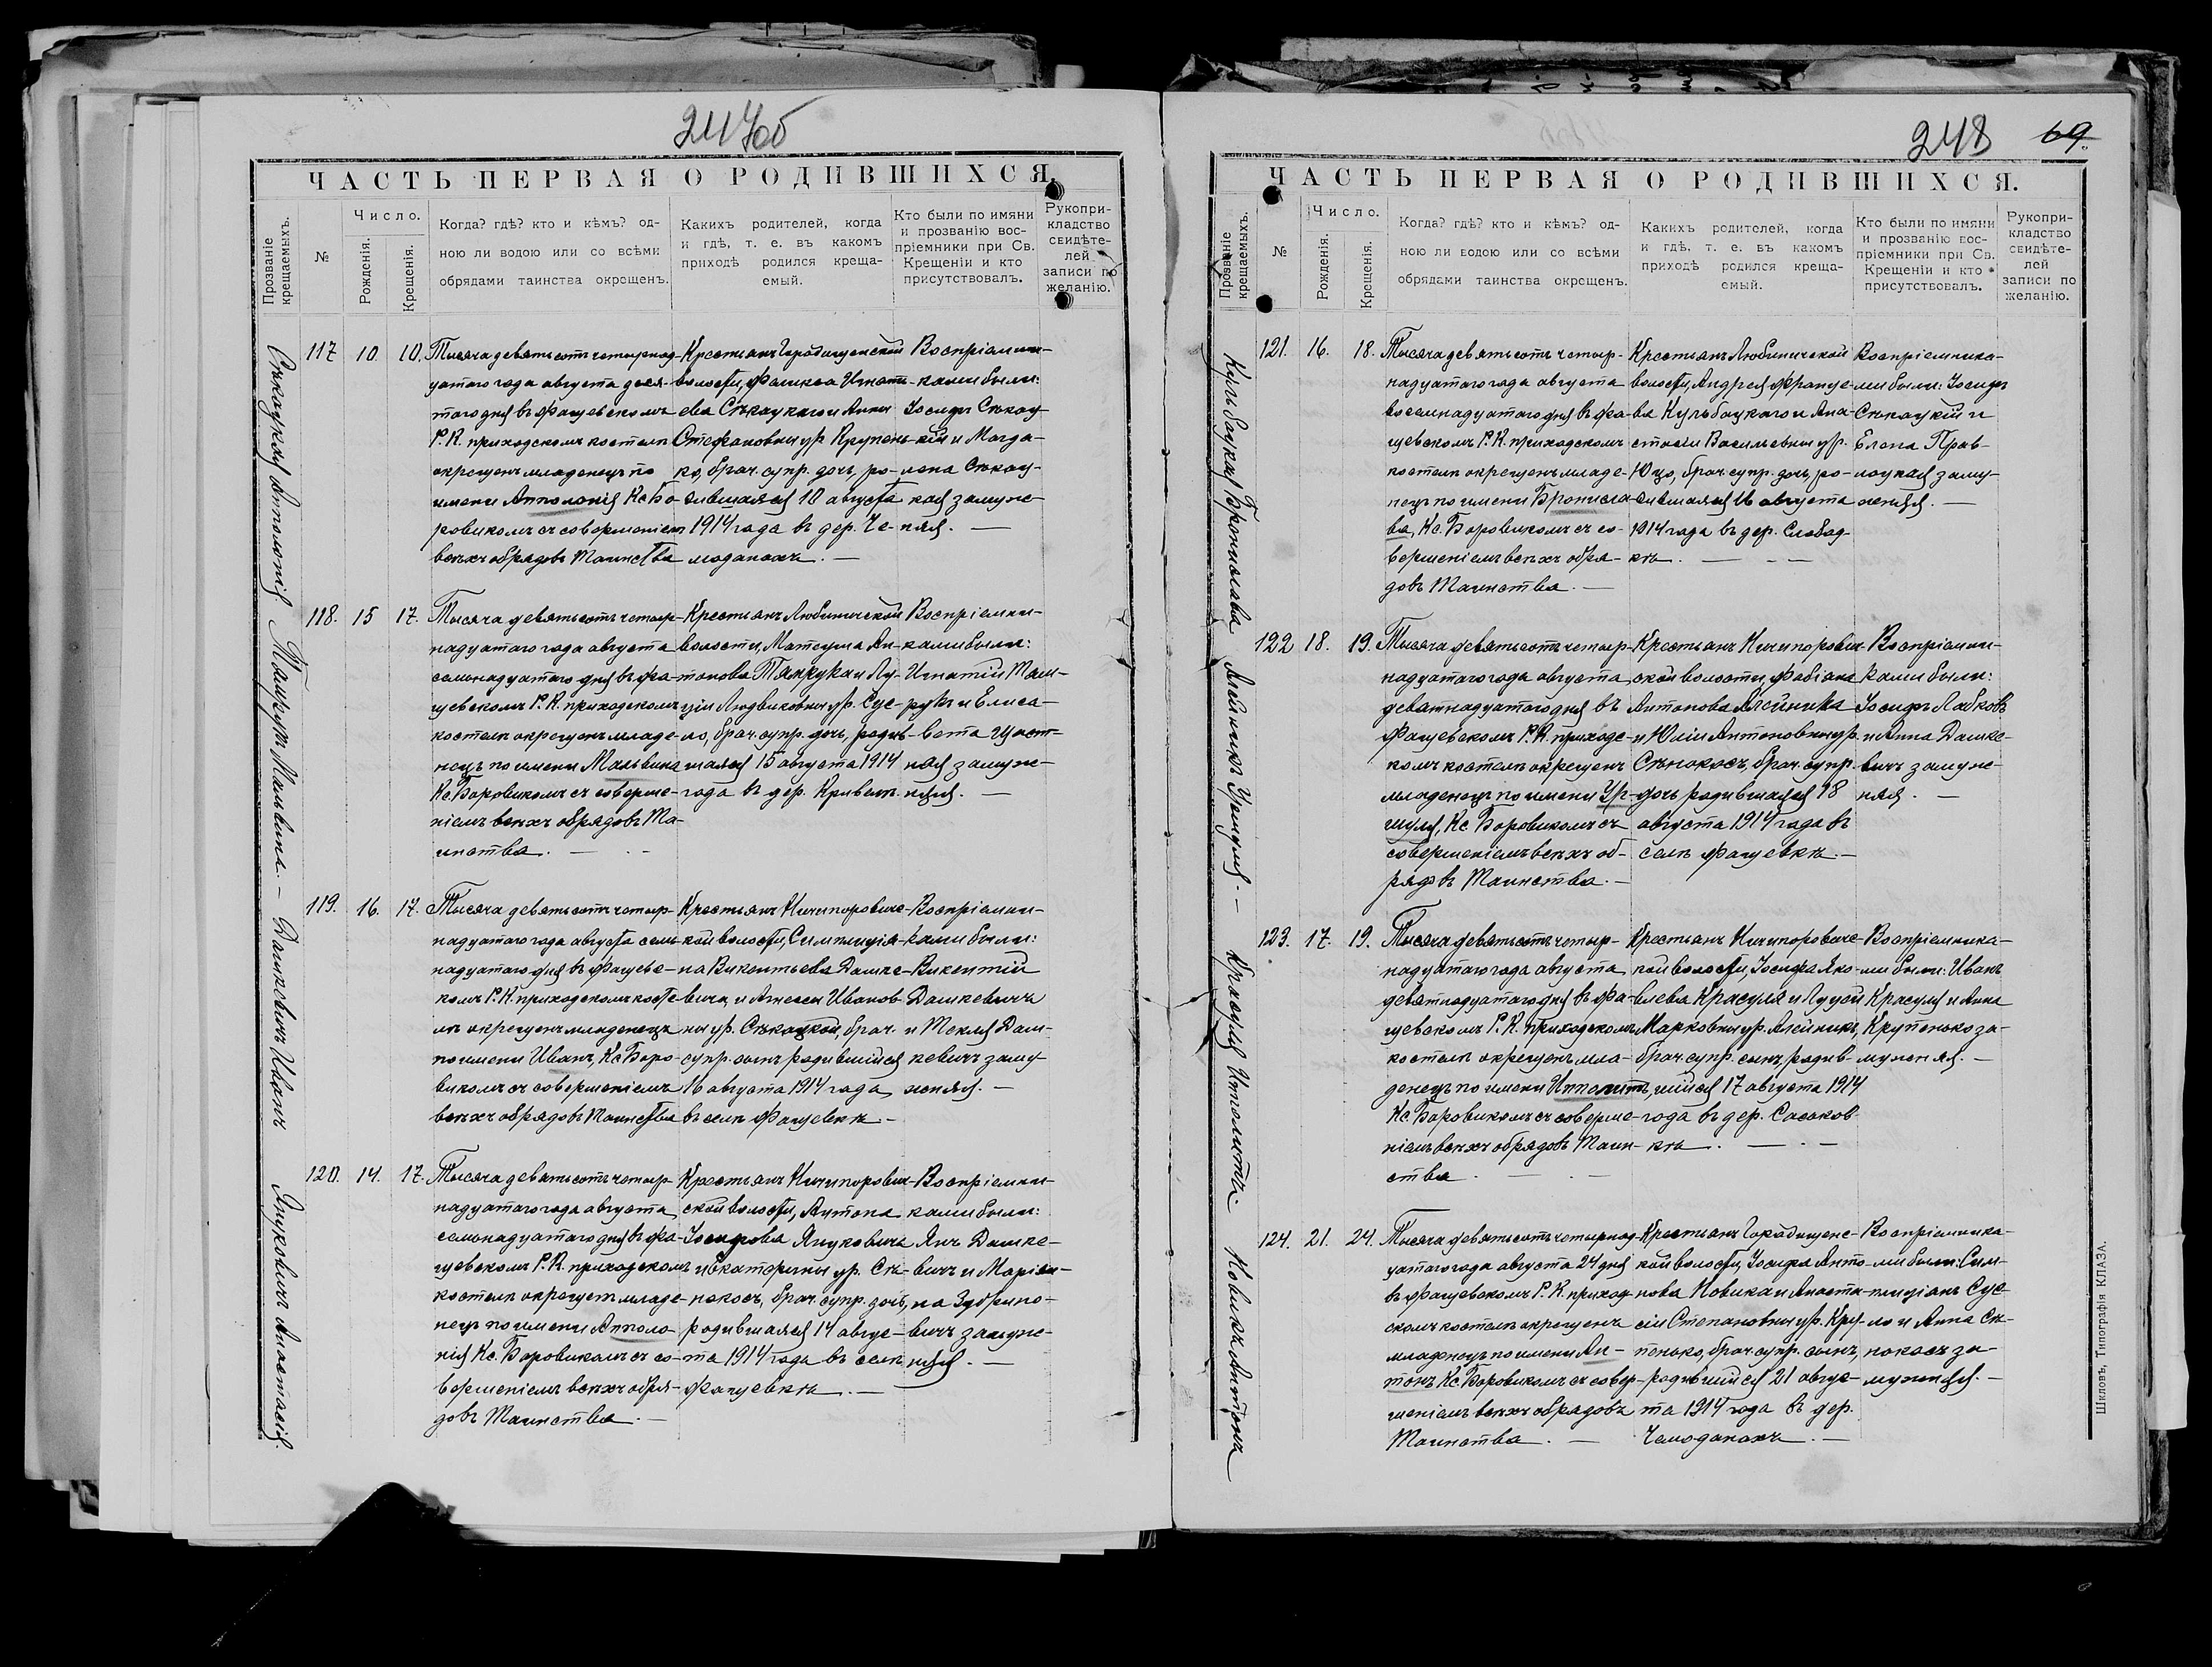 247об
ЧАСТЬ ПЕРВАЯ О РОДИВШИХСЯ.
Прозваніе крещаемыхъ.
№
Число.
Рожденія.
Крещенія.
Когда? гдѣ? кто и кѣмъ? од-
ною ли водою или со всѣми
обрядами таинства окрещенъ.
Какихъ родителей, когда
и гдѣ, т. е. въ какомъ
приходѣ родился креща-
емый.
Кто были по имяни
и прозванію вос-
пріемники при Св.
Крещеніи и кто
присутствовалъ.
Рукопри-
кладство
свидѣте-
лей
записи по
желанію.
117 10. 10.
Тысяча девятьсотъ четырнад-
цатаго года августа деся-
таго дня въ Фащевскомъ
Р. К. приходскомъ костелѣ
окрещенъ младенецъ по
имени Апполонія Кс. Бо-
ровикомъ съ совершеніем
всѣхъ обрядовъ Таинства
Крестьянъ Городищенской
волости, Феликса Игнать-
ева Сѣкацкаго и Анны
Стефановны ур. Крупень-
ко, брач. супр. дочь, ро-
дившаяся 10 августа
1914 года въ дер. Че-
моданахъ. —
Воспріемни-
ками были:
Іосифъ Сѣкац-
кій и Магда-
лена Сѣкац-
кая замуж-
няя. —
118. 15 17.
Тысяча девятьсотъ четыр-
надцатаго года августа
семнадцатаго дня въ Фа-
щевскомъ Р. К. приходскомъ
костелѣ окрещенъ младе-
нецъ по имени Мальвина
Кс. Боровикомъ съ соверше-
ніемъ всѣхъ обрядовъ Та-
инства. —
Крестьянъ Любиничской
волости, Матеуша Ан-
тонова и Лу-
ціи Людвиковны ур. Сус-
ло, брач. супр. дочь, родив-
шаяся 15 августа 1914
года въ дер. Кривель
Воспріемни-
ками были:
Игнатій
и Елиса-
вета
няя замуж-
няя. —
119. 16. 17.
Тысяча девятьсотъ четыр-
надцатаго года августа сем-
надцатаго дня въ Фащевс-
комъ Р. К. приходскомъ косте-
лѣ окрещенъ младенецъ
по имени Иванъ, Кс. Боро-
викомъ съ совершеніемъ
всѣхъ обрядовъ Таинства
Крестьянъ Ничипоровичс-
кой волости, Симплиція-
на Викентьева Дашке-
вича, и Агнесы Иванов-
ны ур. Сѣкацкой, брач.
супр. сынъ родившійся
16 августа 1914 года
въ селѣ Фащевкѣ —
Воспріемни-
ками были:
Викентій
Дашкевичъ
и Текля Даш-
кевичъ заму-
жняя. —
120. 14. 17.
Тысяча девятьсотъ четыр-
надцатаго года августа
семнадцатаго дня въ Фа-
щевскомъ Р. К. приходскомъ
костелѣ окрещенъ младе-
нецъ по имени Апполо-
нія Кс. Боровикомъ съ со-
вершеніемъ всѣхъ обря-
довъ Таинства. —
Крестьянъ Ничипорович-
ской волости, Антона
Іосифова Януковича
и Екатерины ур. Сѣ-
нокосъ, брач. супр. дочь,
родившаяся 14 авгус-
та 1914 года въ селѣ
Фащевкѣ. —
Воспріемни-
ками были:
Янъ Дашке-
вичъ и Маріан-
на
вичъ замуж-
няя. —
Сѣкацкая Апполонія.
Мальвина. —
Дашкевичъ Иванъ
Януковичъ
248 69.
ЧАСТЬ ПЕРВАЯ О РОДИВШИХСЯ.
Прозваніе крещаемыхъ.
№
Число.
Рожденія.
Крещенія.
Когда? гдѣ? кто и кѣмъ? од-
ною ли водою или со всѣми
обрядами таинства окрещенъ.
Какихъ родителей, когда
и гдѣ, т. е. въ какомъ
приходѣ родился креща-
емый.
Кто были по имяни
и прозванію вос-
пріемники при Св.
Крещеніи и кто
присутствовалъ.
Рукопри-
кладство
свидѣте-
лей
записи по
желанію.
121. 16. 18.
Тысяча девятьсотъ четыр-
надцатаго года августа
восемнадцатаго дня въ Фа-
щевскомъ Р. К. приходскомъ
костелѣ окрещенъ младе-
нецъ по имени Бронисла-
ва, Кс. Боровикомъ съ со-
вершеніемъ всѣхъ обря-
довъ Таинства. —
Крестьянъ Любиничской
волости, Андрея Францe-
ва Кульбацкаго и Ана-
стасіи Васильевны ур.
Юцо, брач. супр. дочь, ро-
дившаяся 16 августа
1914 года въ дер. Слобод-
кѣ. —
Воспріемника-
ми были: Іосифъ
Сѣкацкій и
Елена Прав-
лоцкая заму-
жняя. —
122 18. 19.
Тысяча девятьсотъ четыр-
надцатаго года августа
девятнадцатаго дня въ
Фащевскомъ Р. К. приходс-
комъ костелѣ окрещенъ
младенецъ по имени Ур-
шуля, Кс. Боровикомъ съ
совершеніемъ всѣхъ об-
рядовъ Таинства. —
Крестьянъ Ничипорович-
ской волости, Фабіана
Антонова Алейника
и Юліи Антоновны ур.
Сѣнокосъ, брач. супр.
дочь родившаяся 18
августа 1914 года въ
селѣ Фащевкѣ. —
Воспріемни-
ками были:
Іосифъ Лабковъ
и Анна Дашке-
вичъ замуж-
няя. —
123. 17. 19.
Тысяча девятьсотъ четыр-
надцатаго года августа
девятнадцатаго дня въ Фа-
щевскомъ Р. К. приходскомъ
костелѣ окрещенъ мла-
денецъ по имени Ипполитъ,
Кс. Боровикомъ съ соверше-
ніемъ всѣхъ обрядовъ Таин-
ства. —
Крестьянъ Ничипоровичс-
кой волости, Іосифа Яко-
влева Красуля и Луціи
Марковны ур. Алейникъ,
брач. супр. сынъ, родив-
шійся 17 августа 1914
года въ дер. Сосонов-
кѣ. —
Воспріемника-
ми были: Иванъ
Красуля и Анна
Крупенько за-
мужняя. —
124. 21. 24.
Тысяча девятьсотъ четырнад-
цатаго года августа 24 дня
въ Фащевскомъ Р. К. приход-
скомъ костелѣ окрещенъ
младенецъ по имени Ан-
тонъ Кс. Боровикомъ съ совер-
шеніемъ всѣхъ обрядовъ
Таинства. —
Крестьянъ Городищенс-
кой волости, Іосифа Анто-
нова Новика и Анаста-
сіи Степановны ур. Кру-
пенько, брач. супр. сынъ,
родившійся 21 авгус-
та 1914 года въ дер.
Чемоданахъ. —
Воспріемника-
ми были: Сим-
плиціанъ Сус-
ло и Анна Сѣ-
нокосъ за-
мужняя. —
Кульбацкая Бронислава
Алейникъ Уршуля. —
Красуля Ипполитъ.
Новикъ Антонъ
Шкловъ, Типографія КЛАЗА.